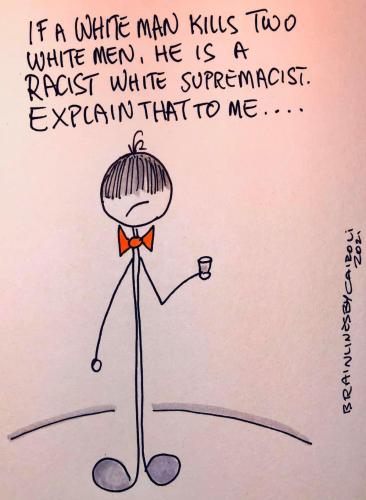 IF A WHITE MAN KILLS TWO
WHITE MEN, HE IS A
RACIST WHITE SUPREMACIST.
EXPLAIN THAT TO ME....
BRAINLINESBYCAIROLI
2021